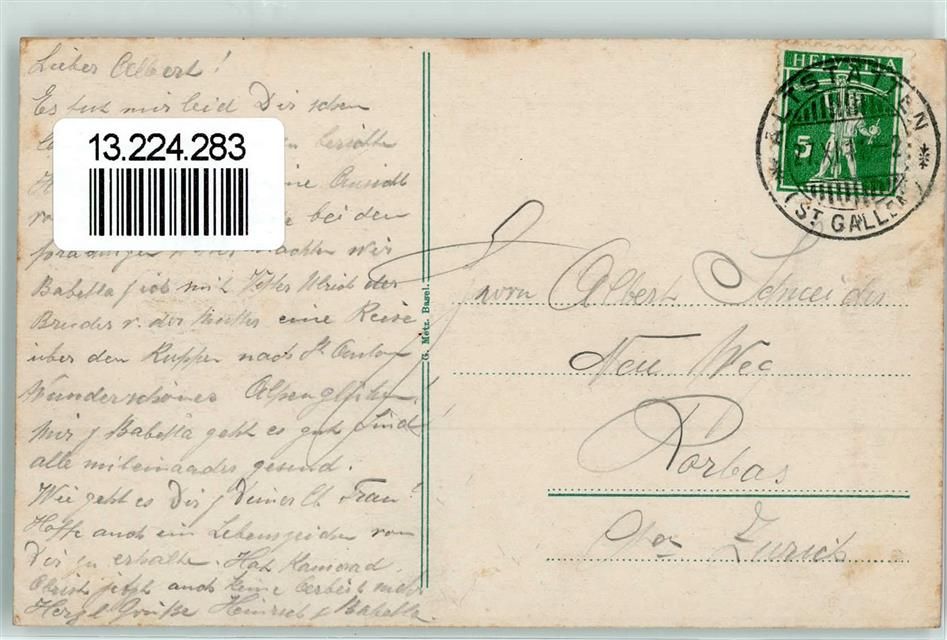 Lieber Albert!
Es tut mir leid Dir schon
berichte
eine Ansicht
bei den
machten wir
Babetta & ich mit Vetter Ulrich der
Bruder v. der Mutter eine Reise
über den Ruppen nach St. Anton
Wunderschönes Alpenglühen!
Mir & Babetta geht es gut Sind
alle miteinander gesund.
Wie geht es Dir & Deiner lb. Frau?
Hoffe auch ein Lebenszeichen von
Dir zu erhalte. Hat Kamerad
Christ jetzt auch keine Arbeit mehr
Herzl Grüße Heinrich & Babetta.
13.224.283
G. Metz, Basel.
HELVETIA
5
ALTSTÄTTEN
(ST. GALLEN)
Herrn Albert Schneider
Neu Weg
Rorbas
Zürich